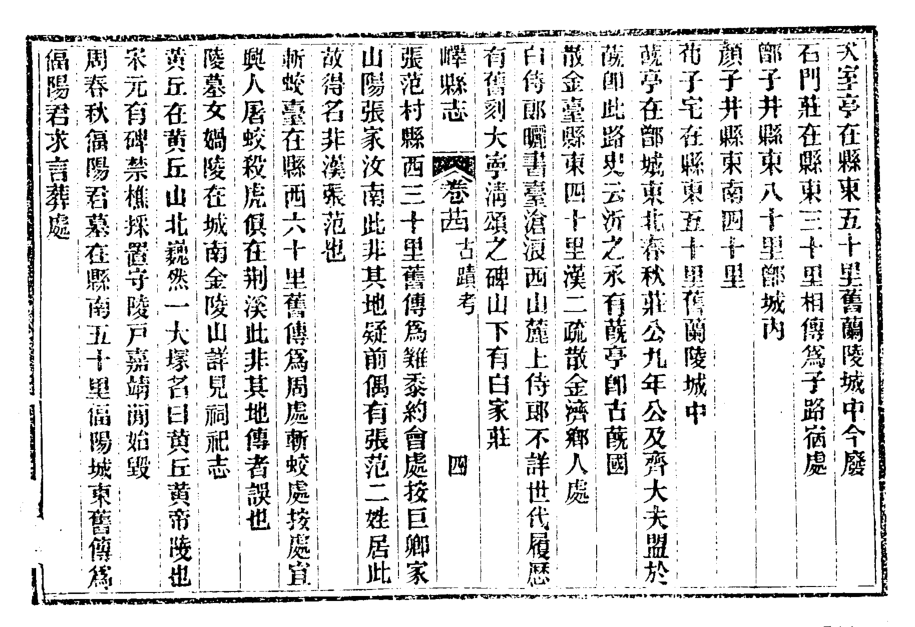 天室亭在縣東五十里舊蘭陵城中今廢
石門莊在縣東三十里相傳為子路宿處
鄫子井縣東八十里鄫城內
顏子井縣東南四十里
荀子宅在縣東五十里舊蘭陵城中
蔇亭在鄫城東北春秋莊公九年公及齊大夫盟於
蔇卽此路史云沂之承有蔇亭卽古蔇國
散金臺縣東四十里漢二疏散金濟鄉人處
白侍郞曬書臺滄浪西山麓上侍郞不詳世代履歷
有舊刻大寧淸頌之碑山下有白家莊
嶧縣志 卷廿四 古蹟考 四
張范村縣西三十里舊傳爲雞黍約會處按巨卿家
山陽張家汝南此非其地疑前偶有張范二姓居此
故得名非漢張范也
斬蛟臺在縣西六十里舊傳爲周處斬蛟處按處宜
興人屠蛟殺虎俱在荆溪此非其地傳者誤也
陵墓女媧陵在城南金陵山詳見祠祀志
黃丘在黃丘山北巍然一大塚名曰黃丘黃帝陵也
宋元有碑禁樵採置守陵戶嘉靖間始毀
周春秋偪陽君墓在縣南五十里偪陽城東舊傳爲
偪陽君求言葬處